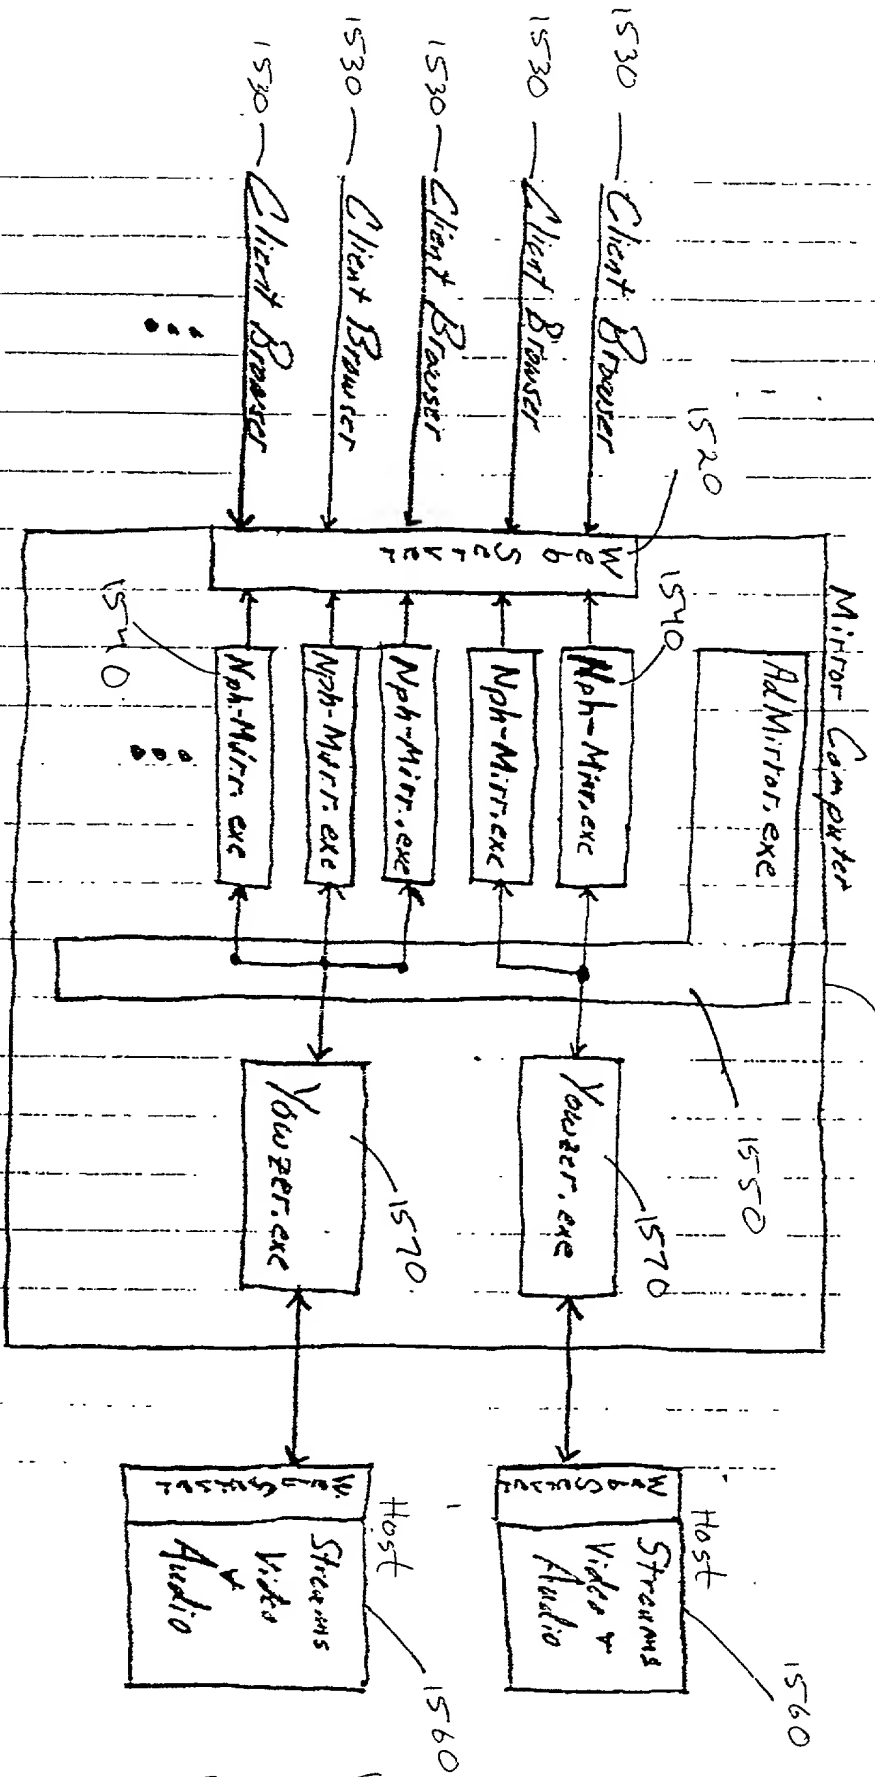 1530 Client Browser
1530 Client Browser
1530 Client Browser
1530 Client Browser
1530 Client Browser
1520
Web Server
Mirror Computer
AdMirror.exe
1540
Nph-Mirr.exe
Nph-Mirr.exe
Nph-Mirr.exe
Nph-Mirr.exe
Nph-Mirr.exe
1540
1550
Yowzer.exe
1570
Yowzer.exe
1570
Host
Web Server
Streams
Video +
Audio
1560
Host
Web Server
Streams
Video
+
Audio
1560